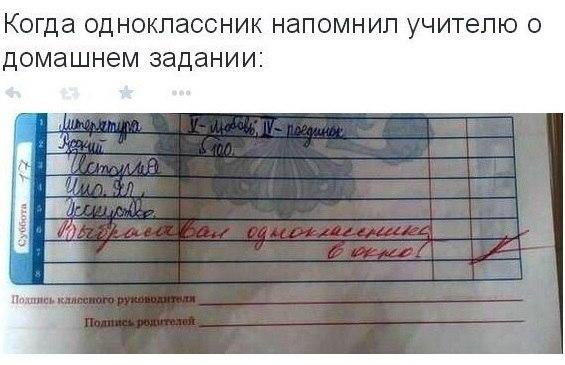 Когда одноклассник напомнил учителю о
домашнем задании:
1 Литература V-Любовь, IV- поединок
2 Русский §100.
3 История
4 Ино. Яз.
5 Исскуство.
6 Выбрасывал одноклассника
7 в окно!
8
Суббота 17
Подпись классного руководителя
Подпись родителей